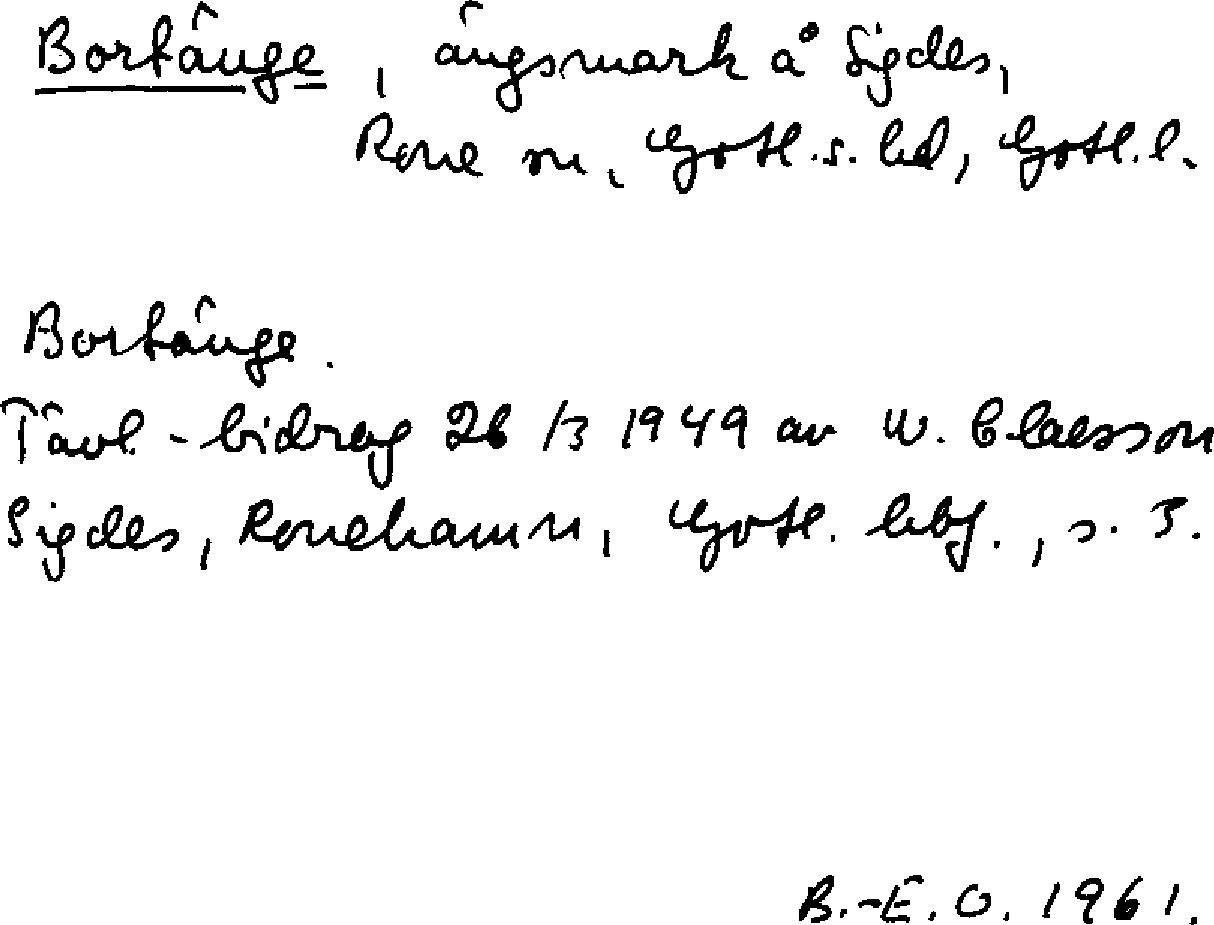 Bortänge, ängsmark å Sigdes,
Rone sn, Gotl.s. hd, Gotl.l.
Bortänge.
Tävl-bidrag 26/3 1949 av W. Claesson
Sigdes, Ronehamn, Gotl. hbf., s. 3.
B.-E. O. 1961.